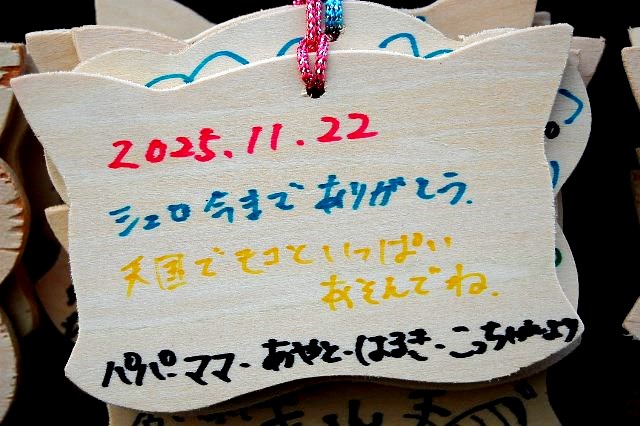 2025.11.22
シェロ今までありがとう.
天国でモコといっぱい
あそんでね.
パパ・ママ・あやと・はるき・こっちゃんより